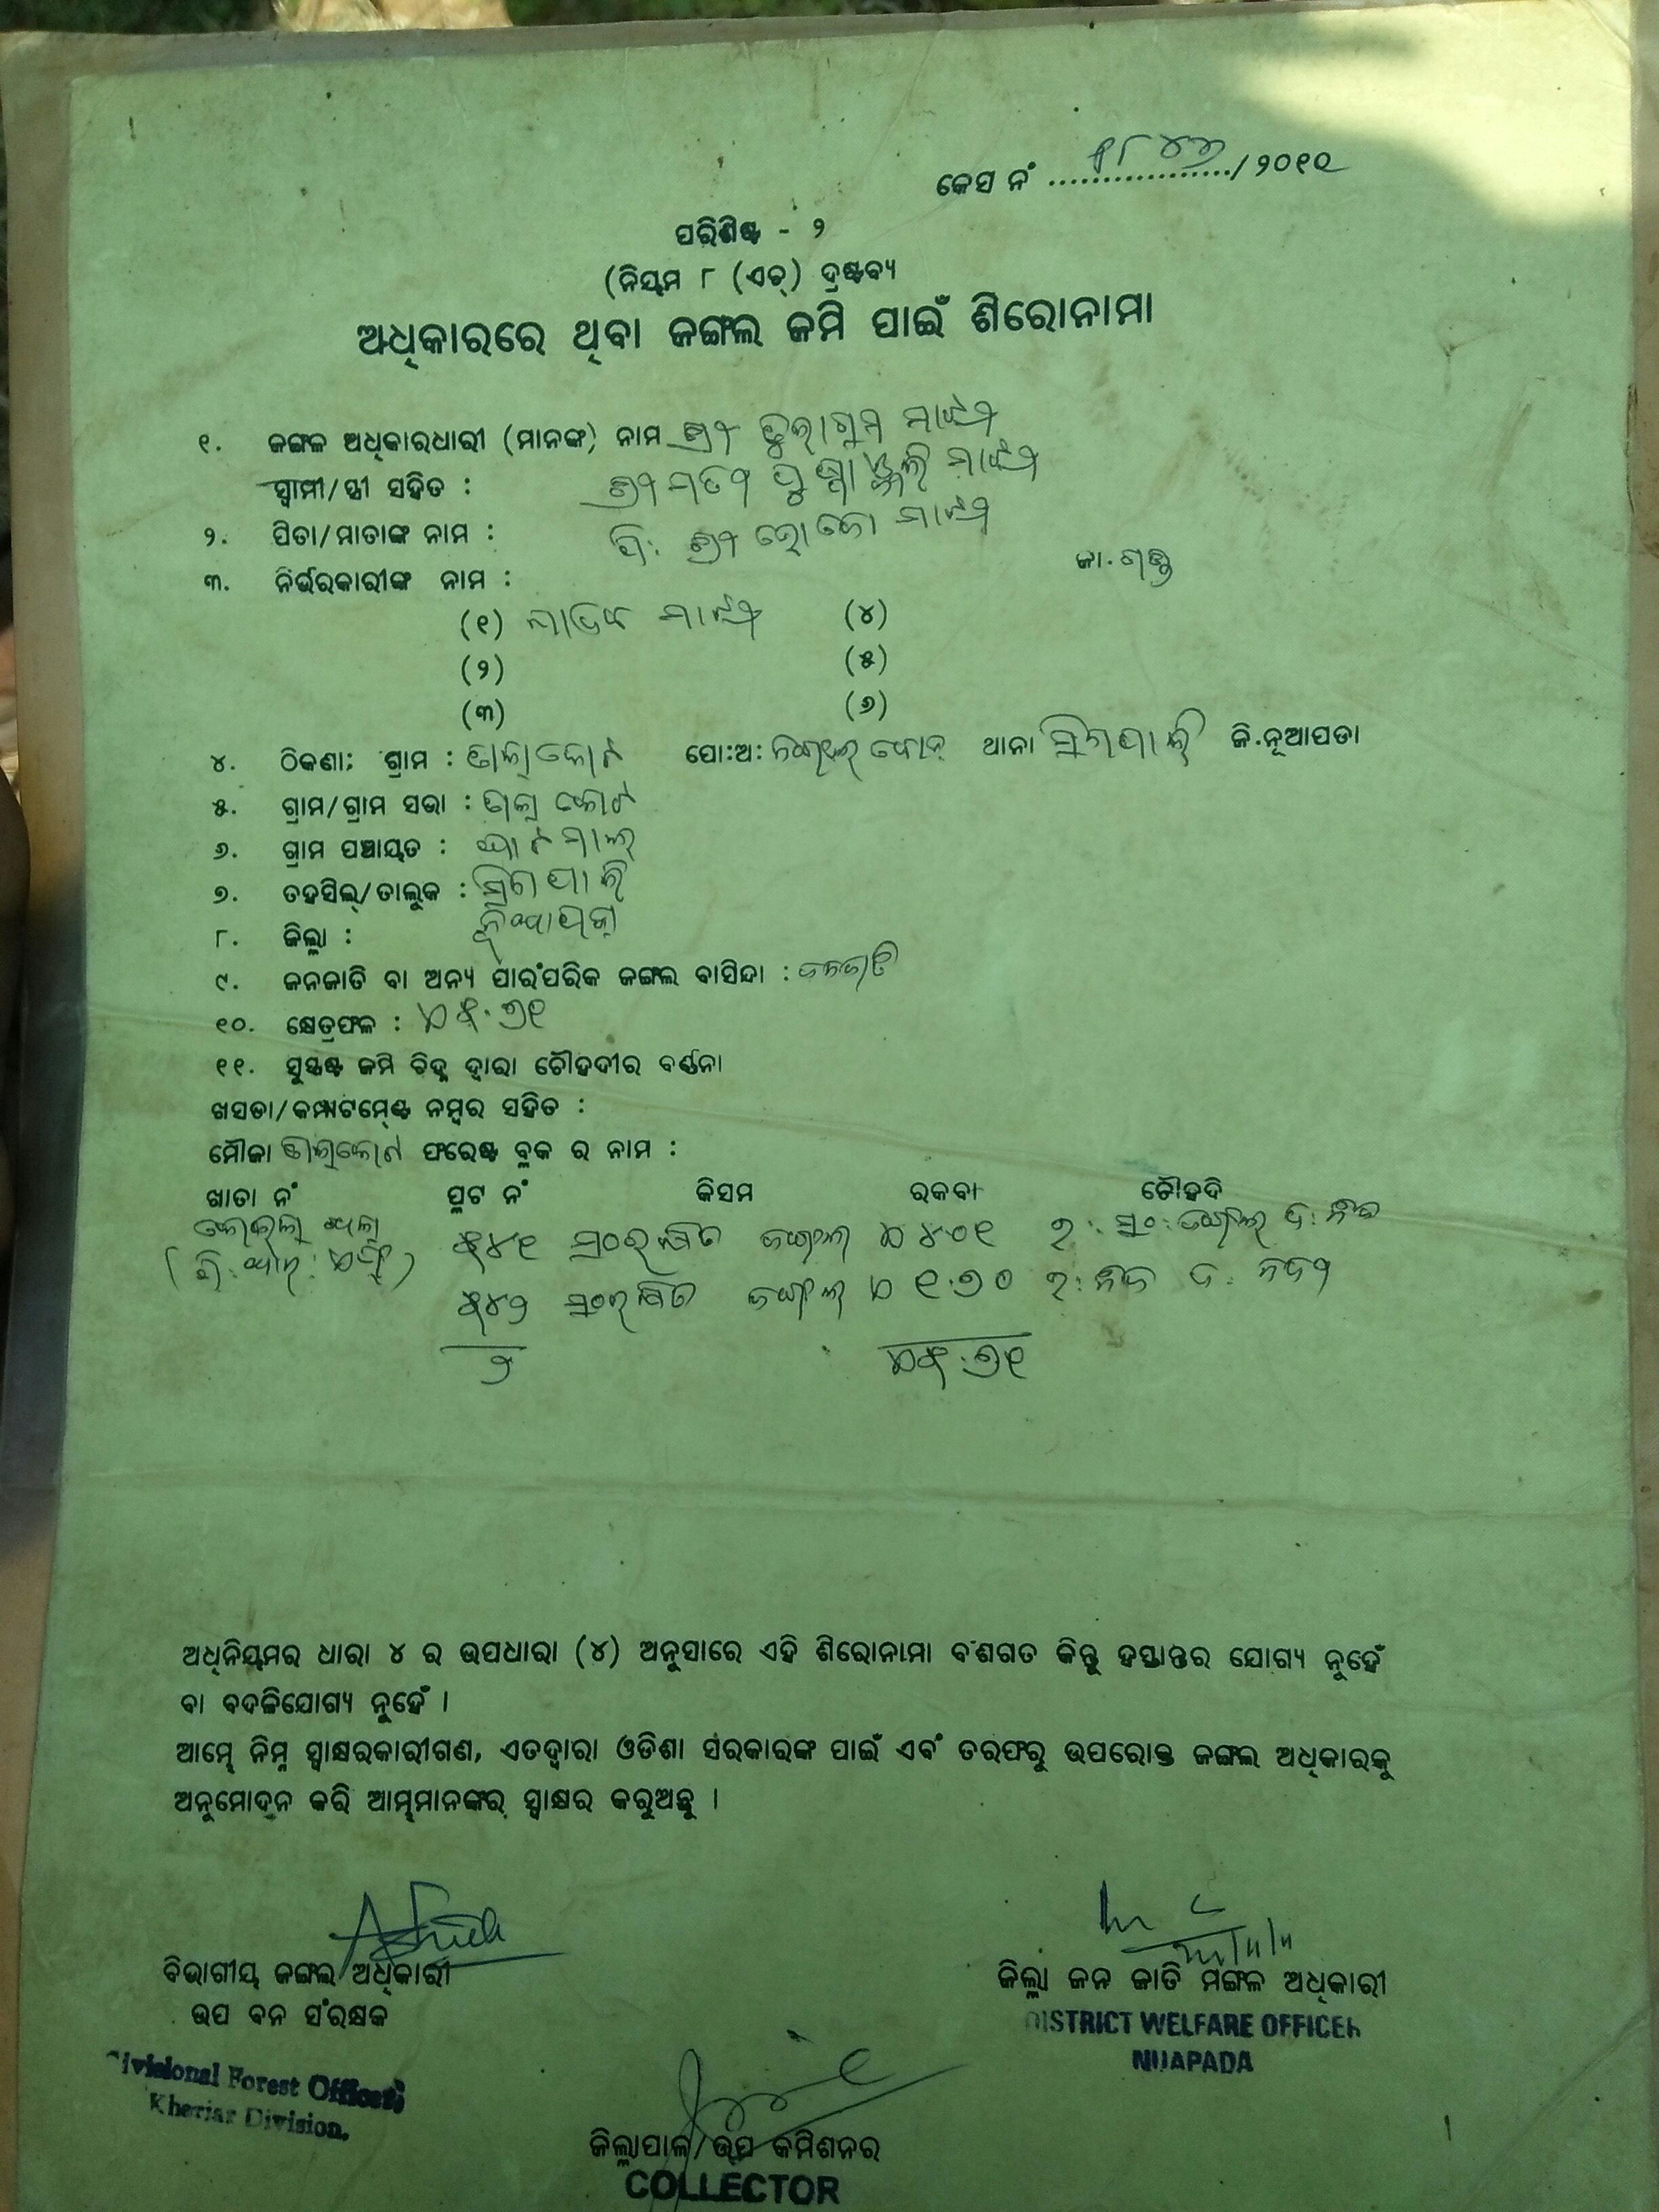 କେସ ନଂ ................../ ୨୦୧୧
ପରିଶିଷ୍ଟ - ୨
(ନିୟମ ୮ (ଏଚ୍) ଦ୍ରଷ୍ଟବ୍ୟ
ଅଧିକାରରେ ଥିବା ଜଙ୍ଗଲ ଜମି ପାଇଁ ଶିରୋନାମା
୧. ଜଙ୍ଗଳ ଅଧିକାରଧାରୀ (ମାନଙ୍କ) ନାମ ଶ୍ରୀ ମାଝୀ
ସ୍ୱାମୀ/ସ୍ତ୍ରୀ ସହିତ : ଶ୍ରୀମତୀ ପୁଷ୍ପାଞ୍ଜଳି ମାଝୀ
୨. ପିତା/ମାତାଙ୍କ ନାମ : ପି: ଶ୍ରୀ ମାଝୀ
୩. ନିର୍ଭରକାରୀଙ୍କ ନାମ : ଜା.
(୧) ମାଝୀ (୪)
(୨) (୫)
(୩) (୬)
୪. ଠିକଣା: ଗ୍ରାମ : ପୋ:ଅ: ଥାନା ସିନାପାଲି ଜି.ନୂଆପଡା
୫. ଗ୍ରାମ/ଗ୍ରାମ ସଭା :
୬. ଗ୍ରାମ ପଞ୍ଚାୟତ : ଘାଟମାଲ
୭. ତହସିଲ୍/ତାଲୁକ : ସିନାପାଲି
୮. ଜିଲ୍ଲା : ନୂଆପଡା
୯. ଜନଜାତି ବା ଅନ୍ୟ ପାରଂପରିକ ଜଙ୍ଗଲ ବାସିନ୍ଦା : ଜନଜାତି
୧୦. କ୍ଷେତ୍ରଫଳ : ୫.୭୧
୧୧. ସୁସ୍ପଷ୍ଟ ଜମି ଚିହ୍ନ ଦ୍ୱାରା ଚୌହଦୀର ବର୍ଣ୍ଣନା
ଖସଡା/କମ୍ପାଟମେଣ୍ଟ ନମ୍ବର ସହିତ :
ମୌଜା ଫରେଷ୍ଟ ବ୍ଲକ ର ନାମ :
ଖାତା ନଂ ପ୍ଲଟ ନଂ କିସମ ରକବା ଚୌହଦି
୫୪୧ ସଂରକ୍ଷିତ ଜଙ୍ଗଲ ୪.୦୧ ଉ: ଜଙ୍ଗଲ ଦ: ନିଜ
୫୪୨ ସଂରକ୍ଷିତ ଜଙ୍ଗଲ ୧.୭୦ ଉ: ନିଜ ଦ: ନଦୀ
୨ ୫.୭୧
ଅଧିନିୟମର ଧାରା ୪ ର ଉପଧାରା (୪) ଅନୁସାରେ ଏହି ଶିରୋନାମା ବଂଶଗତ କିନ୍ତୁ ହସ୍ତାନ୍ତର ଯୋଗ୍ୟ ନୁହେଁ
ବା ବଦଳିଯୋଗ୍ୟ ନୁହେଁ ।
ଆମ୍ଭେ ନିମ୍ନ ସ୍ୱାକ୍ଷରକାରୀଗଣ, ଏତଦ୍ୱାରା ଓଡିଶା ସରକାରଙ୍କ ପାଇଁ ଏବଂ ତରଫରୁ ଉପରୋକ୍ତ ଜଙ୍ଗଲ ଅଧିକାରକୁ
ଅନୁମୋଦନ କରି ଆମ୍ଭମାନଙ୍କର ସ୍ୱାକ୍ଷର କରୁଅଛୁ ।
ବିଭାଗୀୟ ଜଙ୍ଗଲ ଅଧିକାରୀ
ଉପ ବନ ସଂରକ୍ଷକ
Divisional Forest Officer
Khariar Division.
ଜିଲ୍ଲା ଜନ ଜାତି ମଙ୍ଗଳ ଅଧିକାରୀ
DISTRICT WELFARE OFFICER
NUAPADA
ଜିଲ୍ଲାପାଳ/ଉପ କମିଶନର
COLLECTOR